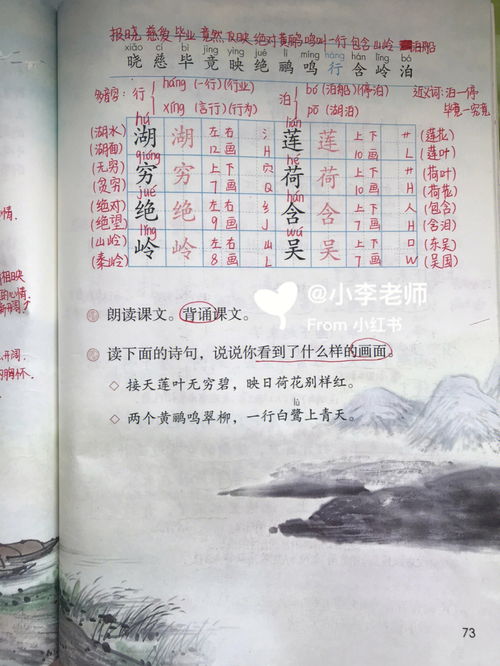 报晓 慈爱 毕业 竟然 反映 绝对 黄鹂 鸣叫 一行 包含 山岭 泊船
xiǎo cí bì jìng yìng jué lí míng háng hán lǐng bó
晓 慈 毕 竟 映 绝 鹂 鸣 行 含 岭 泊
多音字：行 háng (一行)(行业) 泊 bó (泊船)(停泊) 近义词：泊—停
xíng (言行)(行为) pō (湖泊) 毕竟—究竟
hú lián
(湖水) 湖 湖 左右 氵 莲 莲 上下 艹 (莲花)
(湖面) 12画 H 10画 L (莲叶)
qióng hé
(无穷) 穷 穷 上下 穴 荷 荷 上下 艹 (荷叶)
(贫穷) 7画 Q 10画 H (荷花)
jué hán
(绝对) 绝 绝 左右 纟 含 含 上下 人 (包含)
(绝望) 9画 J 7画 H (含泪)
lǐng wú
(山岭) 岭 岭 左右 山 吴 吴 上下 口 (东吴)
(秦岭) 8画 L 7画 W (吴国)
心情。
相映
心情。
开阔。
胸怀。
@小李老师
From 小红书
朗读课文。背诵课文。
读下面的诗句，说说你看到了什么样的画面。
◇ 接天莲叶无穷碧，映日荷花别样红。
lù
◇ 两个黄鹂鸣翠柳，一行白鹭上青天。
73